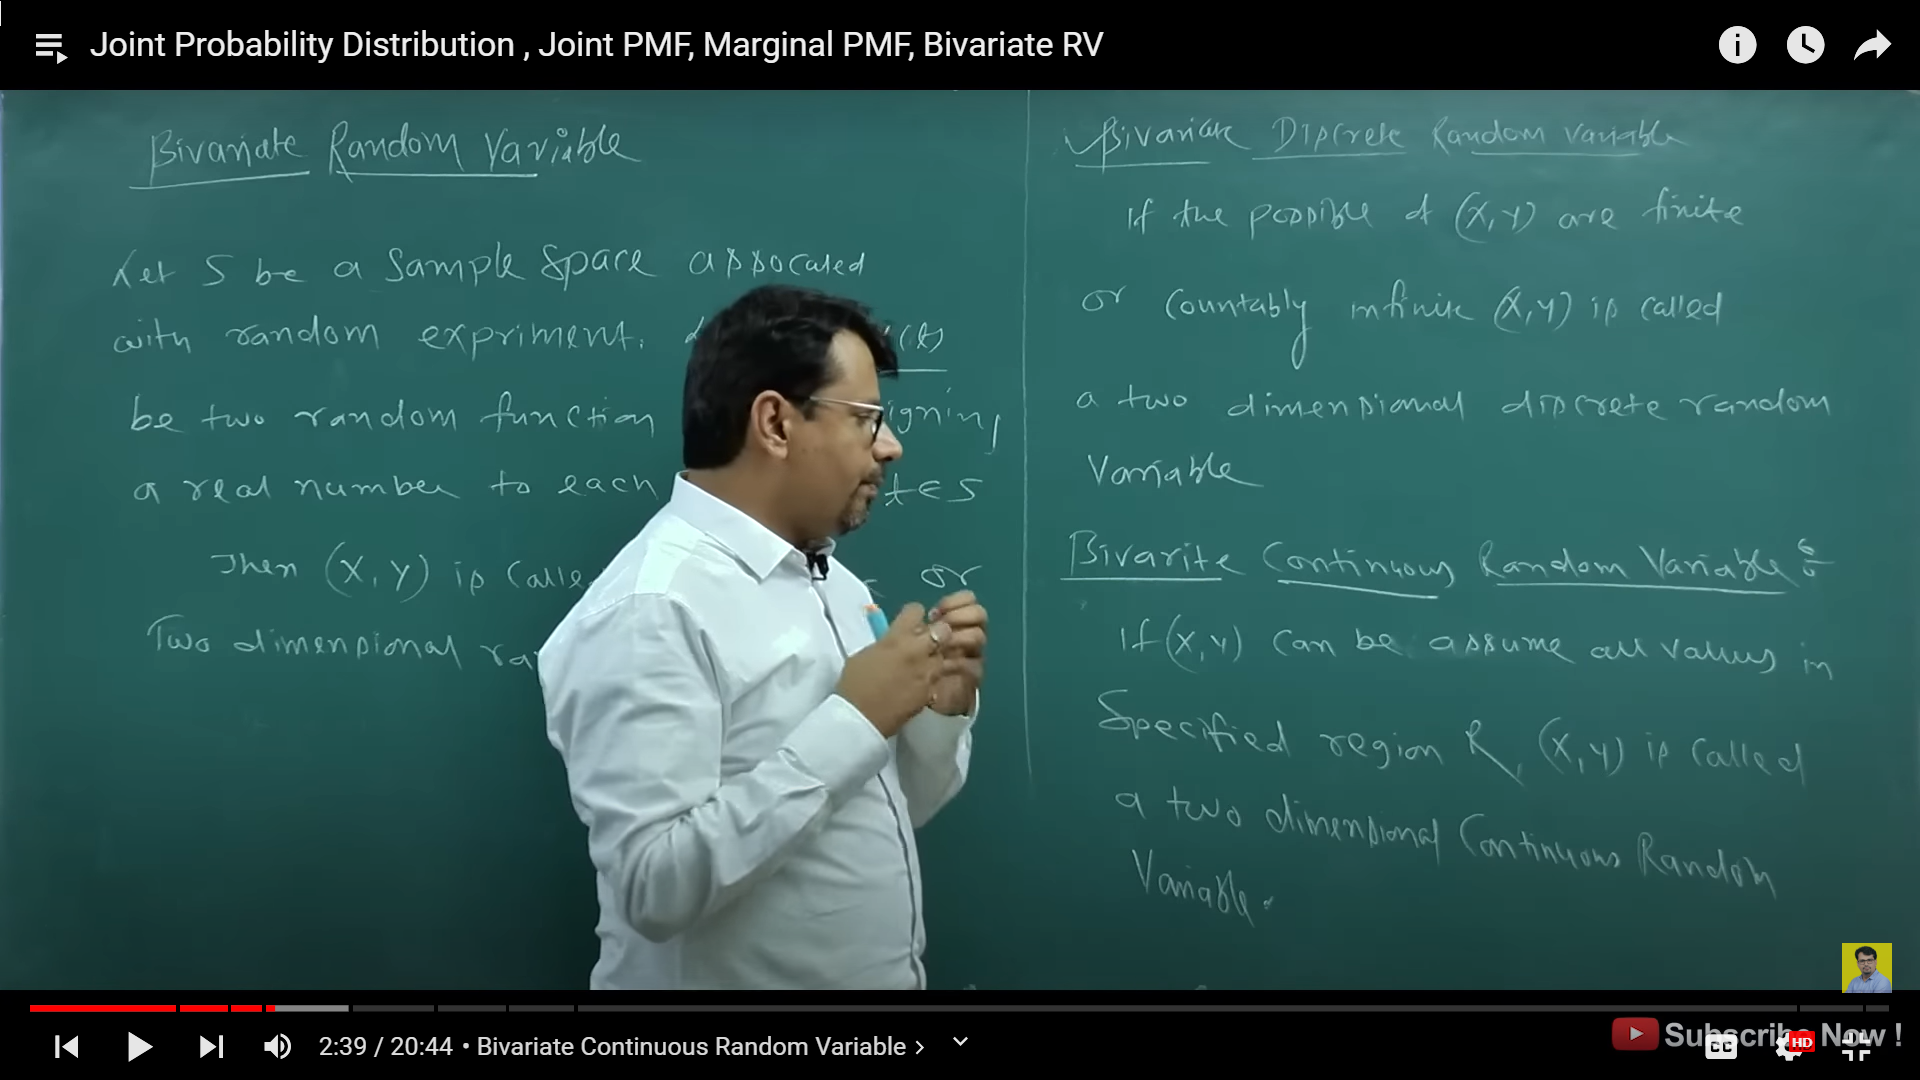 Joint Probability Distribution , Joint PMF, Marginal PMF, Bivariate RV
Bivariate Random Variable
Let S be a sample space assocated
with random expriment.
(t)
be two random function igning
a real number to each t ∈ S
Then (X, Y) is calle or
Two dimensional ra
Bivariate Discrete Random Variable
If the possible of (X, Y) are finite
or countably infinite (X, Y) is called
a two dimensional discrete random
Variable
Bivarite Continuous Random Variable :-
If (X, Y) can be assume all values in
Specified region R, (X, Y) is called
a two dimensional Continuous Random
Variable.
Subscribe Now !
2:39 / 20:44 • Bivariate Continuous Random Variable >
CC
HD